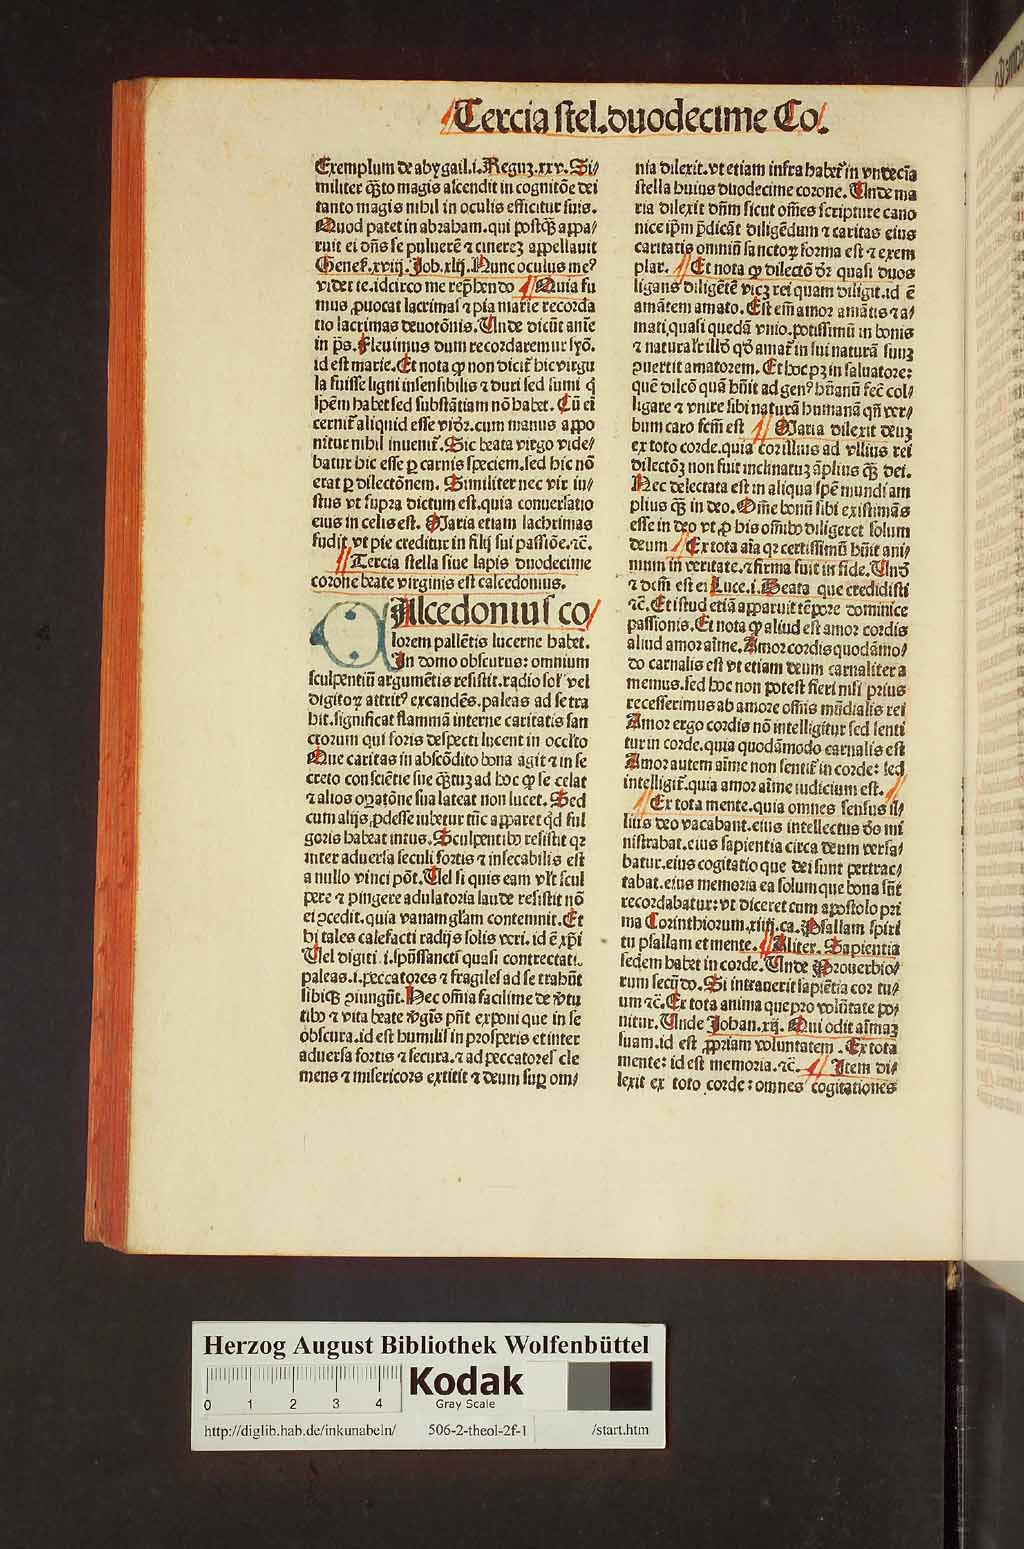 Tercia ſtel.duodecime Co.
Exemplum de abygail.i.Reguꝫ.xxv. Si/
militer q̃ꝫto magis aſcendit in cognitōe dei
tanto magis nihil in oculis efficitur ſuis.
Quod patet in abraham.qui poſtq̃ꝫ appa/
ruit ei dñs ſe puluerē ⁊ cinereꝫ appellauit
Geneſ.xviij. Job.xlij. Nunc oculus me⁹
videt te.idcirco me rep̄hendo Quia fu
mus ꝓuocat lacrimaſ ⁊ pia marie recorda
tio lacrimas deuotōnis. Unde dicūt anīe
in p̄s. Fleuimus dum recordaremur ſyō.
id eſt marie. Et nota ꝙ non dicit̄ hic virgu
la fuiſſe ligni inſenſibilis ⁊ duri ſed fumi q̄
ſpēm habet ſed ſubſtātiam nō habet. Cū ei
cernit̄ aliquid eſſe vidꝛ.cum manus appo
nitur nihil inuenit̄. Sic beata virgo vide/
batur hic eſſe ꝑ carnis ſpeciem.ſed hic nō
erat ꝑ dilectōnem. Similiter nec vir iu/
ſtus vt ſupra dictum eſt.quia conuerſatio
eius in celis eſt. Maria etiam lachrimas
fudit vt pie creditur in filij ſui paſſiōe.⁊c̄.
Tercia ſtella ſiue lapis duodecime
corone beate virginis eſt calcedonius.
Alcedoniuſ co/
lorem pallētis lucerne habet.
In domo obſcurus: omnium
ſculpentiū argumētis reſiſtit.radio ſol̕ vel
digitoꝝ attrit⁹ excandēs.paleas ad ſe tra
hit.ſignificat flammā interne caritatis ſan
ctorum qui foris deſpecti lucent in occl̕to
Que caritas in abſcōdito bona agit ⁊ in ſe
creto conſciētie ſue q̃ꝫtuꝫ ad hoc ꝙ ſe celat
⁊ alios oꝑatōne ſua lateat non lucet. Sed
cum alijs ꝓdeſſe iubetur tūc apparet qd̄ ful
goris habeat intus. Sculpentibꝰ reſiſtit qꝛ
inter aduerſa ſeculi fortis ⁊ inſecabilis eſt
a nullo vinci pōt. Uel ſi quis eam vl̕t ſcul
pere ⁊ pingere adulatoria laude reſiſtit nō
ei ꝯcedit.quia vanam gl̕am contemnit. Et
hi tales calefacti radijs ſolis veri. id ē xp̄i
Uel digiti .i.ſpūſſancti quaſi contrectati.
paleas.i.peccatores ⁊ fragileſ ad ſe trahūt
ſibiqꝫ ꝯiungūt. Hec om̄ia facilime de v̄tu
tibꝰ ⁊ vita beate v̄gīs pn̄t exponi que in ſe
obſcura.id eſt humiliſ in proſperis et inter
aduerſa fortis ⁊ ſecura.⁊ ad peccatoreſ cle
mens ⁊ miſericors extitit ⁊ deum ſuꝑ om/
nia dilexit.vt etiam infra habet̄ in vndecīa
ſtella huius duodecime corone. Unde ma
ria dilexit dn̄m ſicut om̄es ſcripture cano
nice ip̄m p̄dicāt diligēdum ⁊ caritas eius
caritatis omniū ſanctoꝝ forma eſt ⁊ exem
plar. Et nota ꝙ dilectō dꝛ quaſi duos
ligans diligētē vicꝫ rei quam diligit.id ē
amātem amato. Eſt em̄ amor amātis ⁊ a/
mati.quaſi quedā vnio.potiſſimū in bonis
⁊ naturalr̄ illd̄ qd̄ amat̄ in ſui naturā ſuuꝫ
ꝯuertit amatorem. Et hoc pꝫ in ſaluatore:
quē dilcō quā hūit ad gen⁹ hūanū fec̄ col/
ligare ⁊ vnire ſibi naturā humanā qn̄ ver/
bum caro fcm̄ eſt Maria dilexit deuꝫ
ex toto corde.quia cor illius ad vllius rei
dilectōꝫ non fuit inclinatuꝫ āplius q̃ꝫ dei.
Nec delectata eſt in aliqua ſpē mundi am
plius q̃ꝫ in deo. Om̄e bonū ſibi exiſtimās
eſſe in deo vt ꝓ his om̄ibꝰ diligeret ſolum
deum Ex tota aīa qꝛ certiſſimū hūit ani/
mum in veritate.⁊ firma fuit in fide. Und̄
⁊ dcm̄ eſt ei Luce.i. Beata que credidiſti
⁊c̄. Et iſtud etiā apparuit tēpore dominice
paſſionis. Et nota ꝙ aliud eſt amor cordis
aliud amor aīme. Amor cordis quodāmo/
do carnalis eſt vt etiam deum carnaliter a
memus.ſed hoc non poteſt fieri niſi prius
receſſerimus ab amore om̄is mūdialis rei
Amor ergo cordis nō intelligitur ſed ſenti
tur in corde.quia quodāmodo carnalis eſt
Amor autem aīme non ſentit̄ in corde: ſed
intelligit̄.quia amor aīme iudicium eſt.
Ex tota mente.quia omnes ſenſus il/
lius deo vacabant.eius intellectus d̄o mi
niſtrabat.eius ſapientia circa deum verſa/
batur.eius cogitatio que dei ſunt pertrac/
tabat.eius memoria ea ſolum que bona ſūt
recordabatur: vt diceret cum apoſtolo pri
ma Corinthiorum.xiiij.ca. Pſallam ſpiri
tu pſallam et mente. Aliter. Sapientia
ſedem habet in corde. Unde Prouerbio/
rum ſecūdo. Si intrauerit ſapiētia cor tu/
um ⁊c̄. Ex tota anima que pro volūtate po/
nitur. Unde Johan.xij. Qui odit aīmaꝫ
ſuam.id eſt ꝓpriam voluntatem . Ex tota
mente: id eſt memoria.⁊c̄. Item di/
lexit ex toto corde: omnes cogitationes
Herzog August Bibliothek Wolfenbüttel
0 1 2 3 4
Kodak
Gray Scale
http://diglib.hab.de/inkunabeln/ 506-2-theol-2f-1 /start.htm